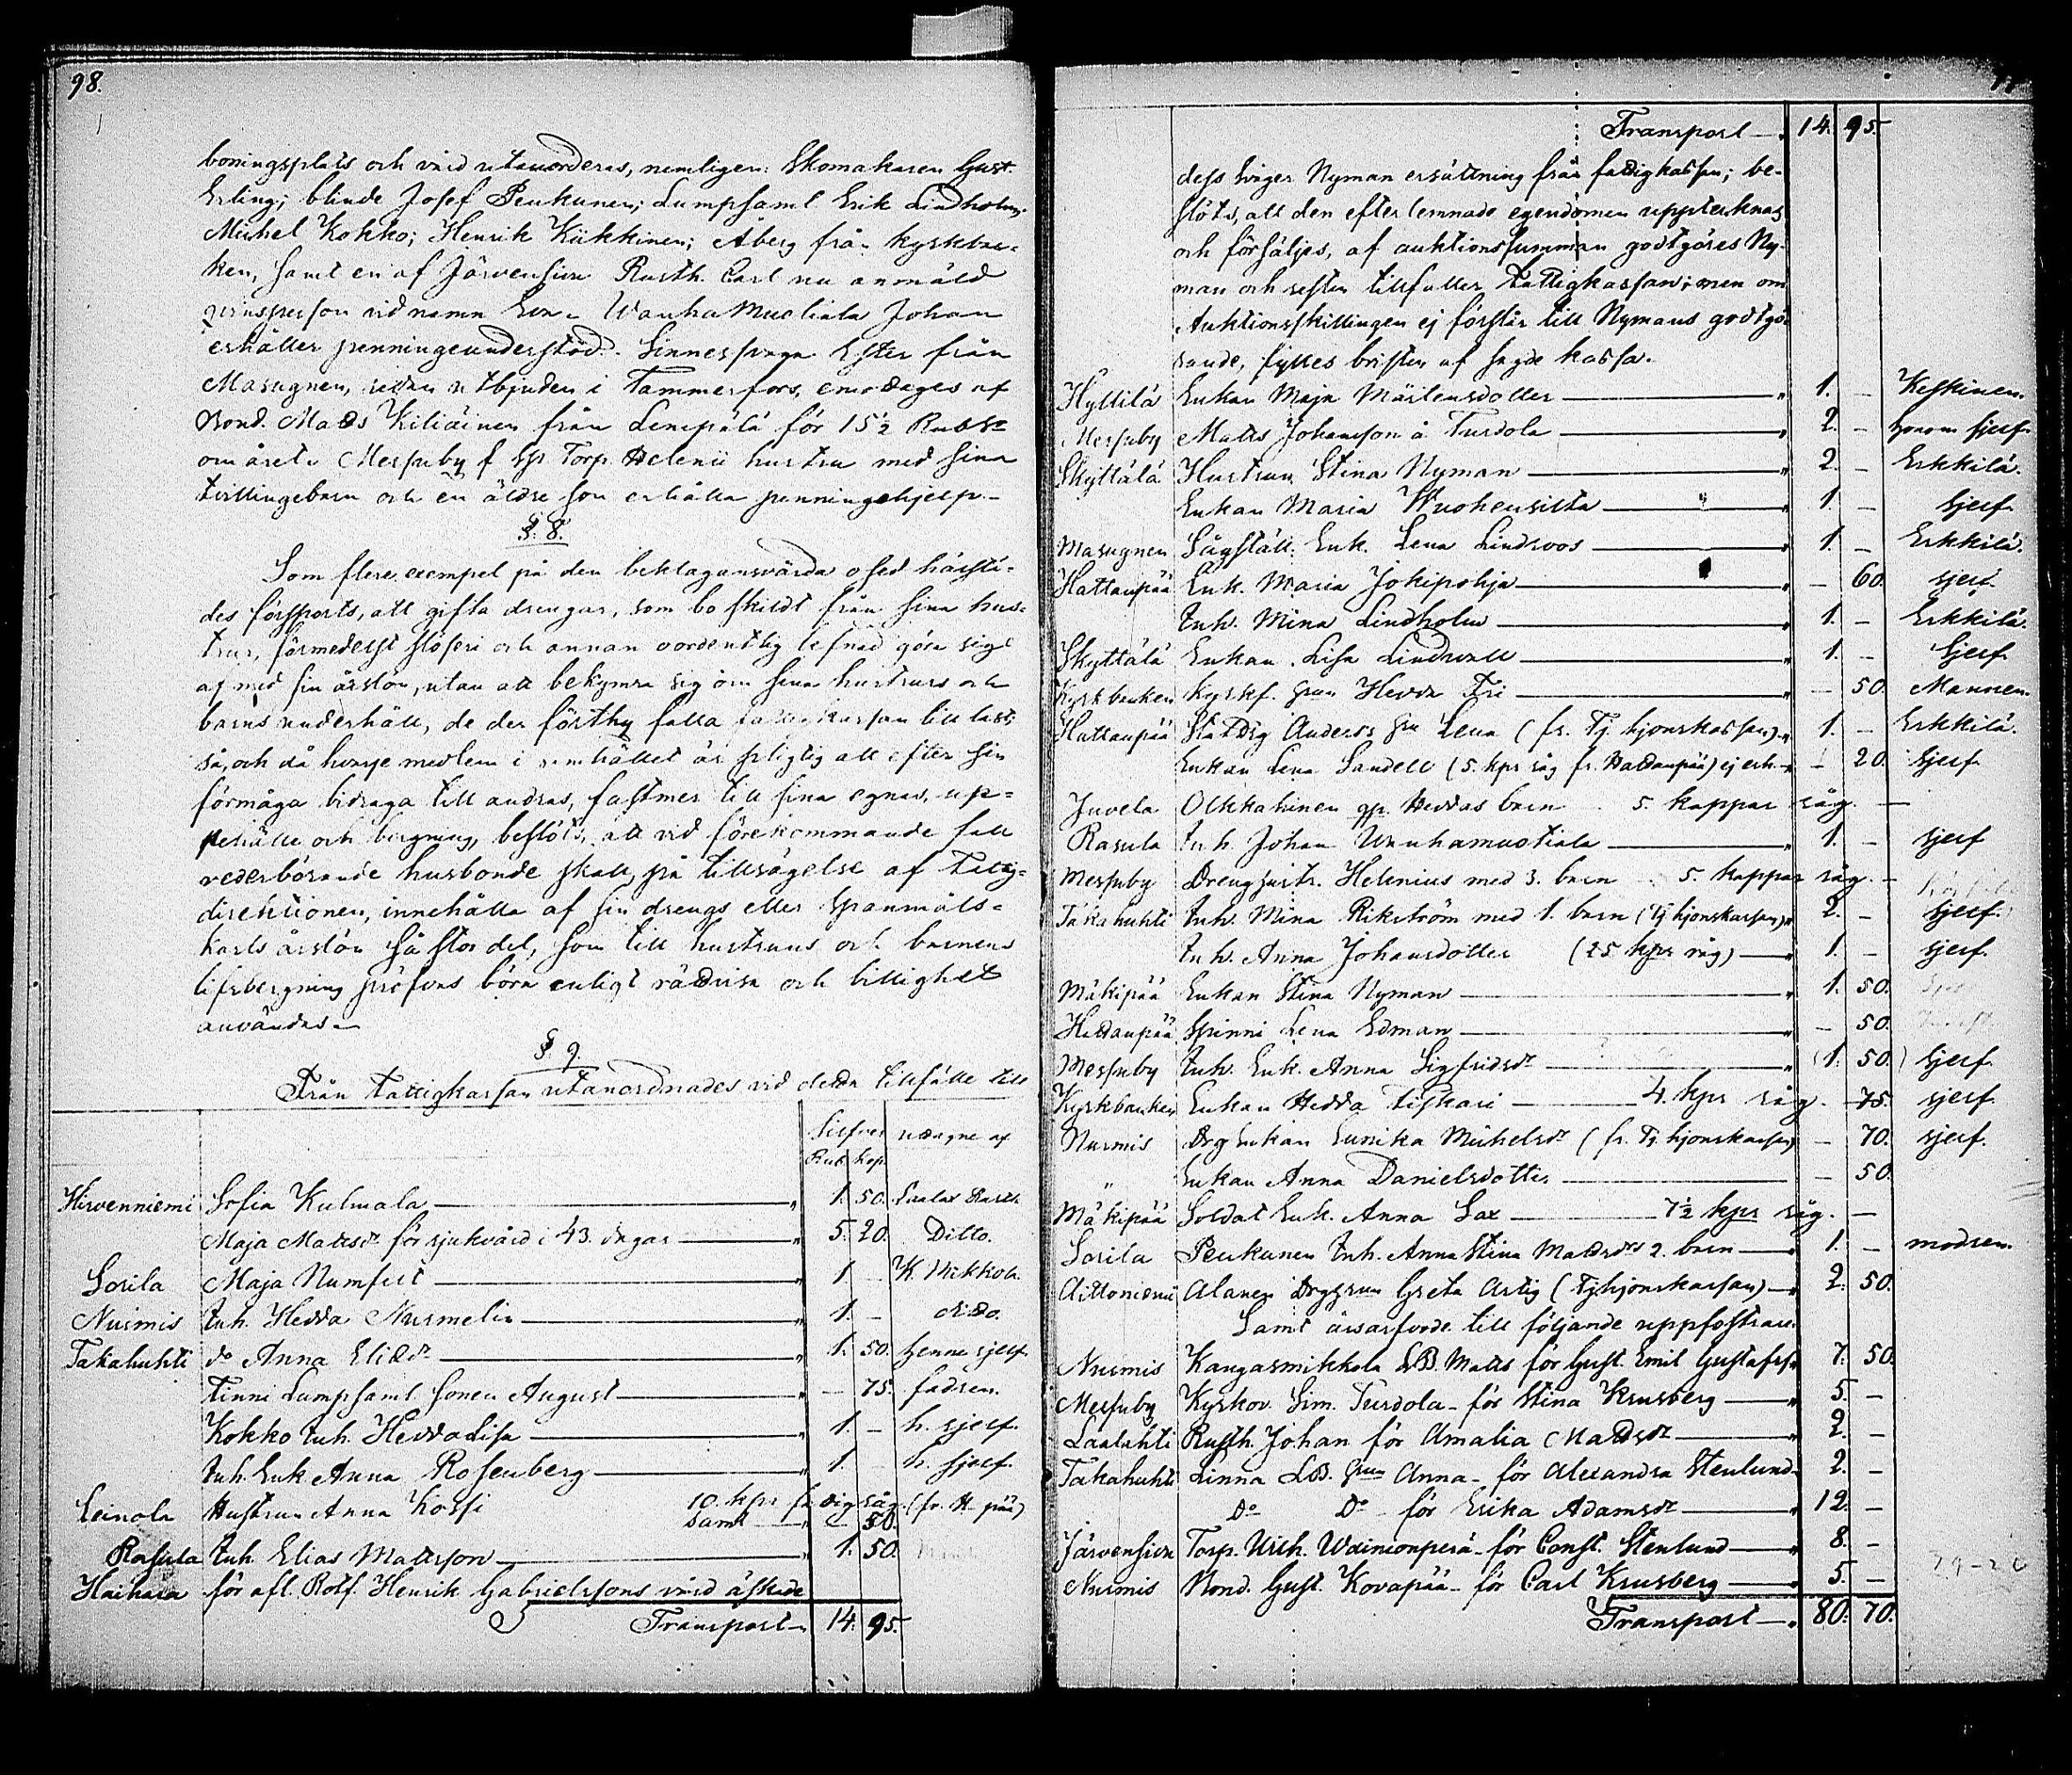 98.
boningsplats och vård utanordneras, nemligen: Skomakaren Gust.
Erling; blinde Josef Penkunen; Lumpsaml Erik Lindholm;
Michel Kokko; Henrik Kiikkinen; Åberg från Kyrkbac-
ken, samt en af Järvensivu Rusth. Carl nu anmäld
qvinsperson vid namn Eva. Wanha Muotiala Johan
erhåller penningeunderstöd. Sinnessvaga Ester från
Masugnen, sedan utbjuden i Tammerfors, emottages af
Bond. Matts Kiliäinen från Lempälä för 15½ Rub Sr
om året. Messuby f Sp Torp. Helenii hustru med sina
tvillingebarn och en äldre son erhålla penningehjelp.-
§. 8.
Som flere exempel på den beklagansvärda osed härstä-
des försports, att gifta drengar, som bo skildt från sina hus-
trur, förmedelst slöseri och annan oordentlig lefnad göra sig
af med sin årslön, utan att bekymra sig om sina hustrurs och
barns underhåll, de der förthy falla fattigkassan till last;
så, och då hvarje medlem i samhället är pligtig att efter sin
förmåga bidraga till andras, fastmer till sina egnas, up-
pehälle och bergning, beslöts, att vid förekommande fall
vederbörande husbonde skall, på tillsägelse af Fattig-
direktionen, innehålla af sin drengs eller Spanmåls-
karls årslön så stor del, som till hustruns och barnens
lifsbergning pröfvas böra enligt rättvisa och billighet
användas.-
§. 9.
Från Fattigkassan utanordnades vid detta tillfälle till
Silfver uttagne af
Rub. kop.
Hirvenniemi Sofia Kulmala 1. 50. Laalax Rusth.
Maja Mattsdr för sjukvård i 43. dagar 5. 20. Ditto.
Sorila Maja Numfelt 1 - K. Mikkola
Nurmis Inh. Hedda Nurmelin 1. - dito.
Takahuhti do Anna Eliædr 1. 50. henne sjelf
Tinni Lumpsaml. sonen August - 75. fadren.
Kokko Inh. Hedda Lisa 1. - h. sjelf.
Inh. Enk. Anna Rosenberg 1. - h. sjelf.
Leinola Hustrun Anna Koski 10. kpr råg (fr. H-pää)
samt - 50.
Rasula Inh. Elias Mattsson 1. 50.
Haihara för afl. Rotf. Henrik Gabrielssons vård äskade
Transport 14. 95.
Transport 14. 95.
dess svåger Nyman ersättning från fattigkassan; be-
slöts, att den efterlemnade egendomen uppteknas
och försäljes, af auktionssumman godtgöres Ny-
man och resten tillfaller Fattigkassan; men om
Auktionsskillingen ej förslår till Nymans godtgö-
rande, fylles bristen af sagde kassa.
Hyllilä Enkan Maja Mårtensdotter 1. - Keskinen.
Messuby Matts Johansson å Turdola 2. - honom sjelf.
Skyttälä Hustrun Stina Nyman 2. - Erkkilä.
Enkan Maria Wuohensilta 1. - sjelf.
Masugnen Sågställ. Enk. Lena Lindroos 1. - Erkkilä.
Hattanpää Enk. Maria Jokipohja - 60. sjelf.
Inh. Mina Lindholm 1. - Erkkilä.
Skyttälä Enkan Lisa Lindwall 1. - sjelf.
Kyrkbacken Kyrkf. grun Hedda Fri - 50. Mannen.
Hattanpää StatDrg Anders gru Lena (fr. Tj. hjonskassan) 1. - Erkkilä.
Enkan Lena Sandell (5. kpr råg fr. Hattanpää) ej erh. - 20. sjelf.
Juvela Olkkahinen qp. Heddas barn 5. kappar råg. -
Rasula Inh. Johan Wanhamuotiala 1. - sjelf
Messuby Drenghustr. Helenius med 3. barn 5. kappar råg. -
Takahuhti Inh. Mina Rikström med 1. barn (Tj hjonskassan) 2. - sjelf.
Inh. Anna Johansdotter (25 kpr råg) 1. - sjelf.
Mäkipää Enkan Stina Nyman 1. 50.
Hattanpää Spinni Lena Edman - 50.
Messuby Inh. Enk. Anna Sigfridsdr (1. 50.) sjelf.
Kyrkbacken Enkan Hedda Fiskari 4. kpr råg. - 75. sjelf.
Nurmis Drg Enkan Eunika Michelsdr (fr. Tj. hjonskassan) - 70. sjelf.
" Enkan Anna Danielsdotter - 50.
Mäkipää Soldat Enk. Anna Lax 7½ kpr råg. -
Sorila Penkunen Inh. Anna Stina Mattsdrs 2. barn 1. - modren.
Aittoniemi Alanen Drggrun Greta Artig (Tjhjonskassan) 2. 50.
Samt årsarfvode till följande uppfostrare.
Nurmis Kangasmikkola LB. Matts för Gust. Emil Gustafss. 7. 50.
Messuby Kyrkov. Sim. Turdola - för Stina Krusberg 5. -
Laalahti Rusth. Johan för Amalia Mattsdr 2. -
Takahuhti Linna LB. grun Anna - för Alexandra Stenlund 2. -
Do Do - för Erika Adamsdr 12. -
Järvensivu Torp. Wilh. Wainionperä - för Const. Stenlund 8. -
Nurmis Bond. Gust. Kovapää - för Carl Krusberg 5. -
Transport 80. 70.